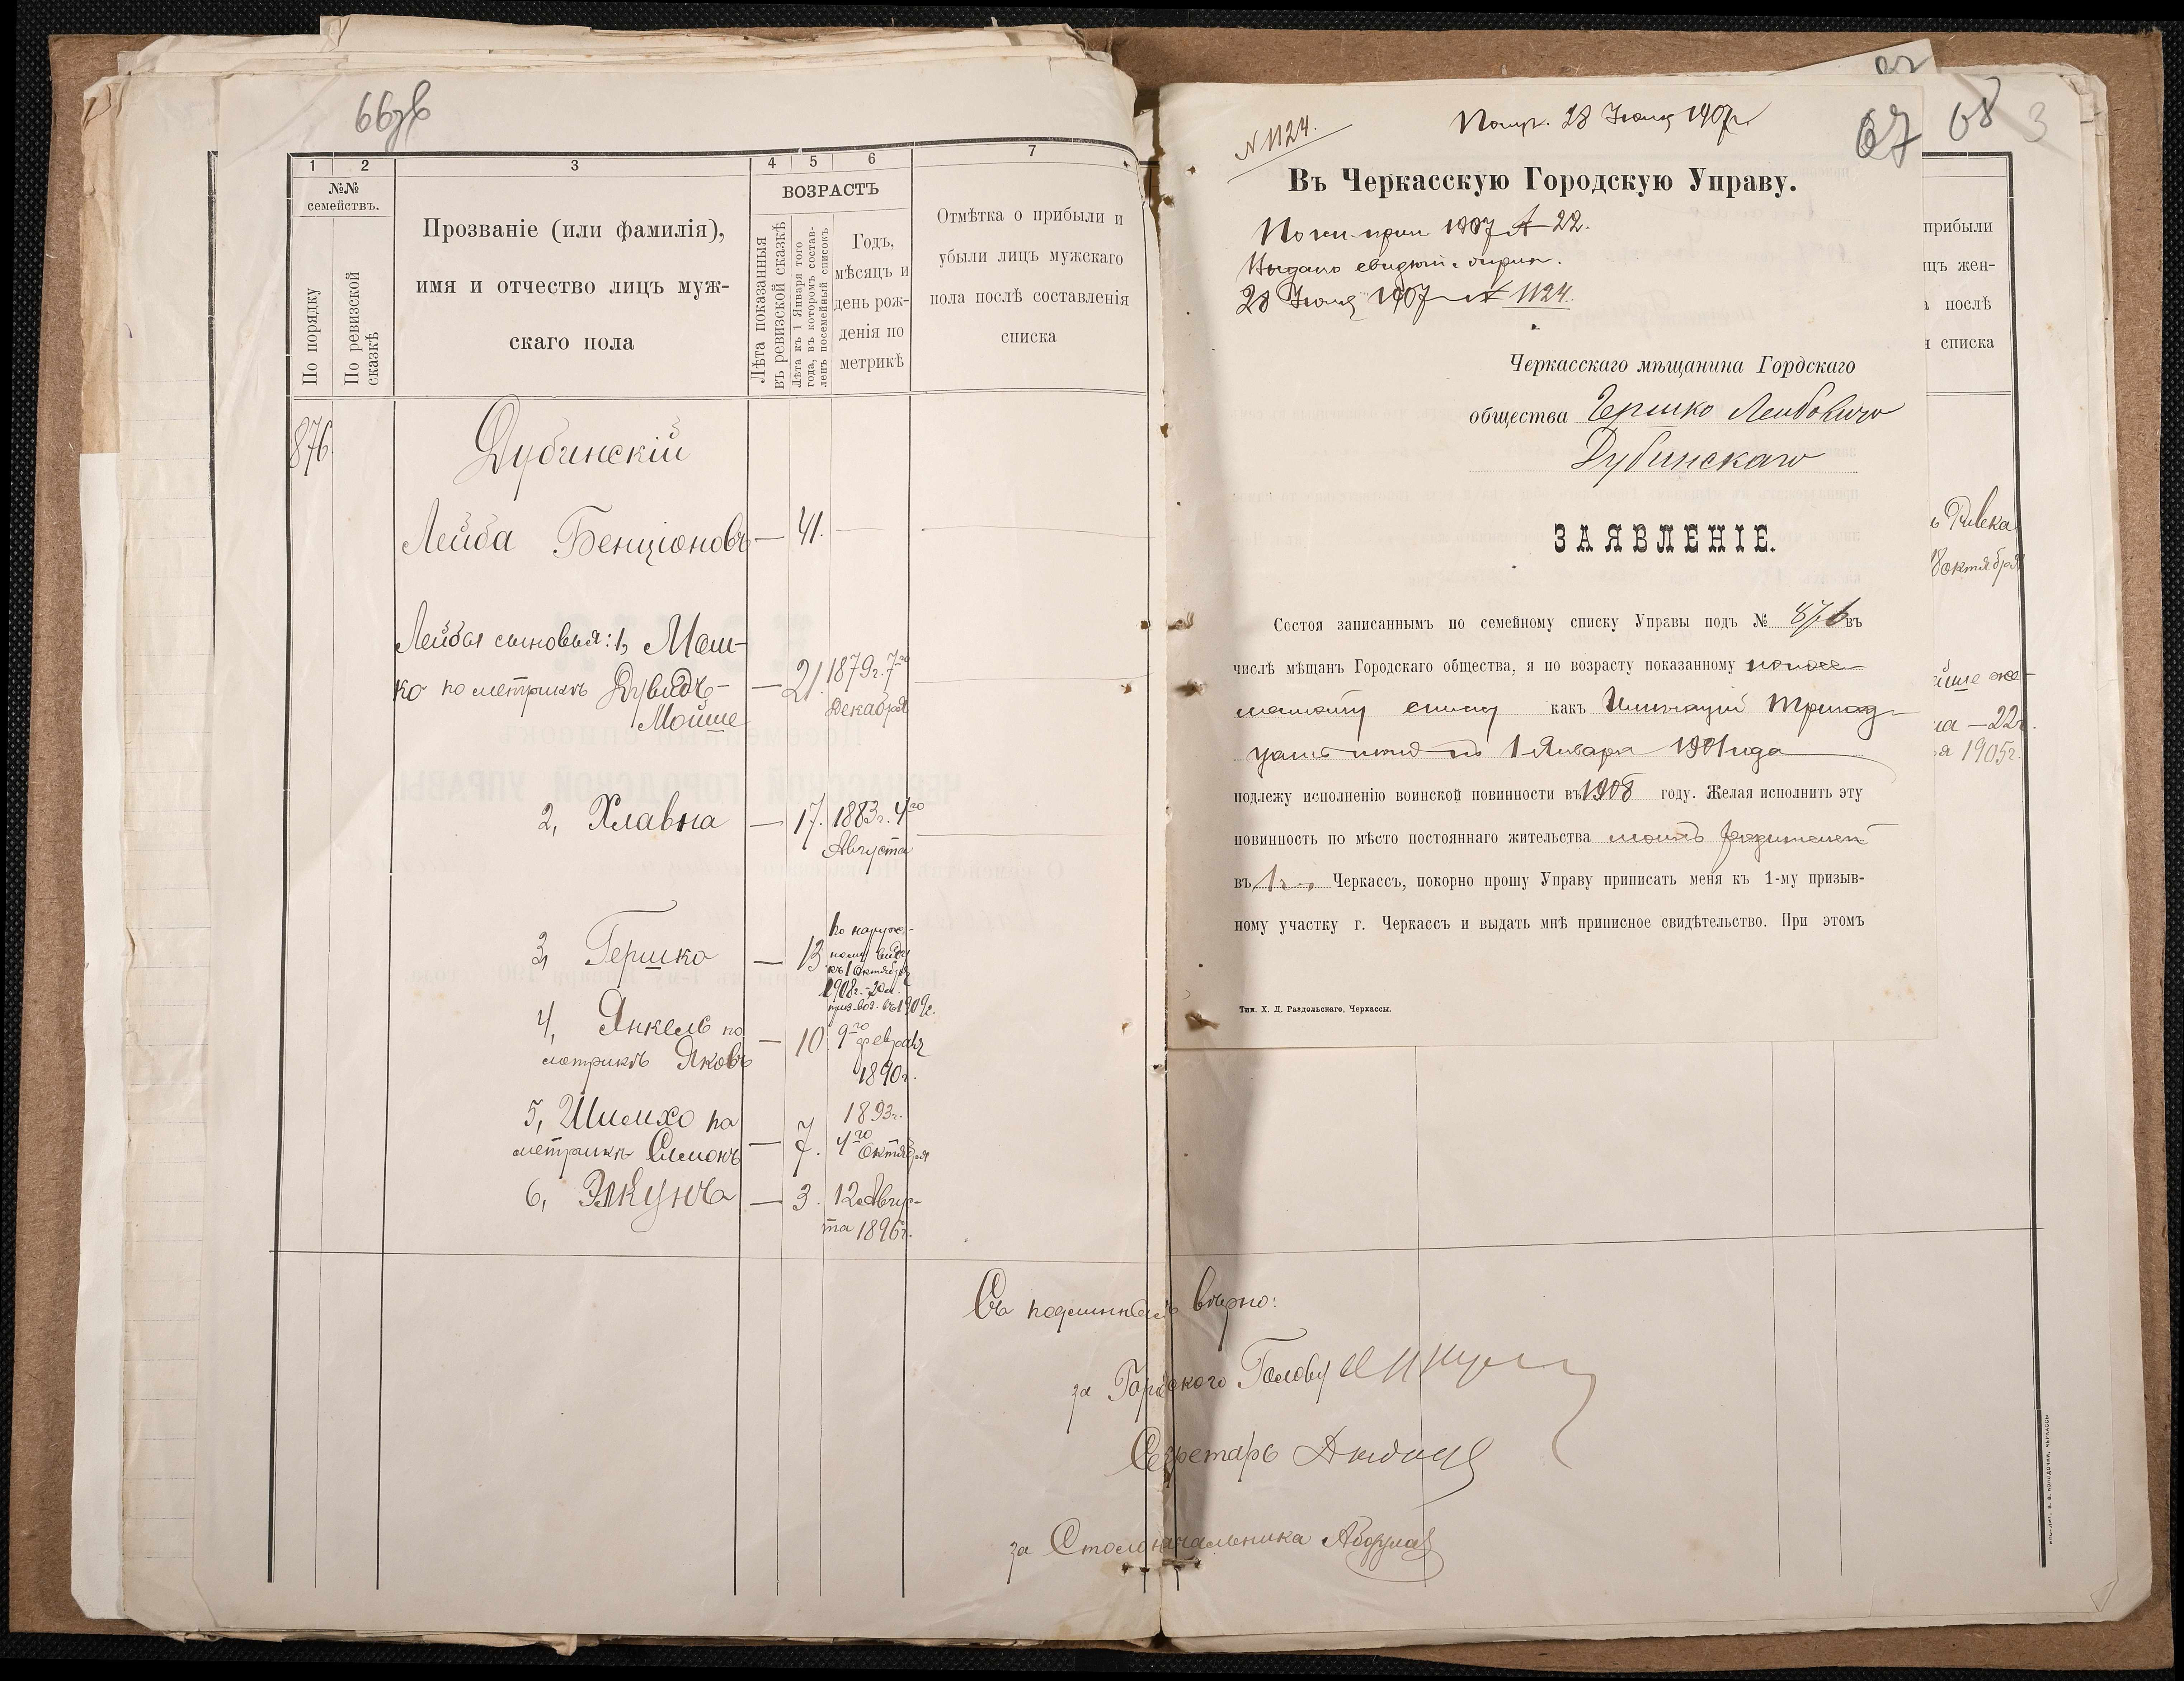 66зв
1 2 3 4 5 6 7
№№ семействъ.
По порядку
По ревизской сказкѣ
Прозваніе (или фамилія),
имя и отчество лицъ муж-
скаго пола
ВОЗРАСТЪ
Лѣта показанныя въ ревизской сказкѣ
Лѣта къ 1 Января того года, въ которомъ состав-ленъ посемейный списокъ
Годъ,
мѣсяцъ и
день рож-
денія по
метрикѣ
Отмѣтка о прибыли и
убыли лицъ мужскаго
пола послѣ составленія
списка
876.
Дубинскій
Лейба Бенціоновъ — 41. —
Лейбы сыновья: 1, Мош-
ко по метрикѣ Дувидъ- — 21. 1879г. 7го
Мойше Декабря
2, Хлавна — 17. 1883г. 4го
Августа
3, Гершко — 13
по наруж-
ному виду
къ 1 Октября
1908г. - 20 л.
приз. воз. въ 1909г.
4, Янкель по — 10. 9го февраля
метрикѣ Яковъ 1890г.
5, Шимхо по — 7. 1893г.
метрикѣ Симонъ 4го Октября
6, Элкуна — 3. 12 Авгус-
та 1896г.
Съ подлиннымъ вѣрно:
за Городского Голову
Секретарь
за Столоначальника
67
68
3
N 1124.
28 Іюня 1907г.
Въ Черкасскую Городскую Управу.
1907 № 22.
Выдано свидѣт. о припис.
28 Іюня 1907 № 1124.
Черкасскаго мѣщанина Гордскаго
общества Гершко Лейбовича
Дубинскаго
ЗАЯВЛЕНІЕ.
Состоя записаннымъ по семейному списку Управы подъ № 876 въ
числѣ мѣщанъ Городскаго общества, я по возрасту показанному посе-
мейному списку какъ имѣющій тринад-
цать лѣтъ къ 1 Января 1901 года
подлежу исполненію воинской повинности въ 1908 году. Желая исполнить эту
повинность по мѣсто постояннаго жительства моихъ родителей
въ г. Черкассъ, покорно прошу Управу приписать меня къ 1-му призыв-
ному участку г. Черкассъ и выдать мнѣ приписное свидѣтельство. При этомъ
Тип. Х. Д. Раздольскаго, Черкассы.
прибыли
цъ жен-
послѣ
списка
Ривека
8 октября
же-
на — 22г.
1905г.